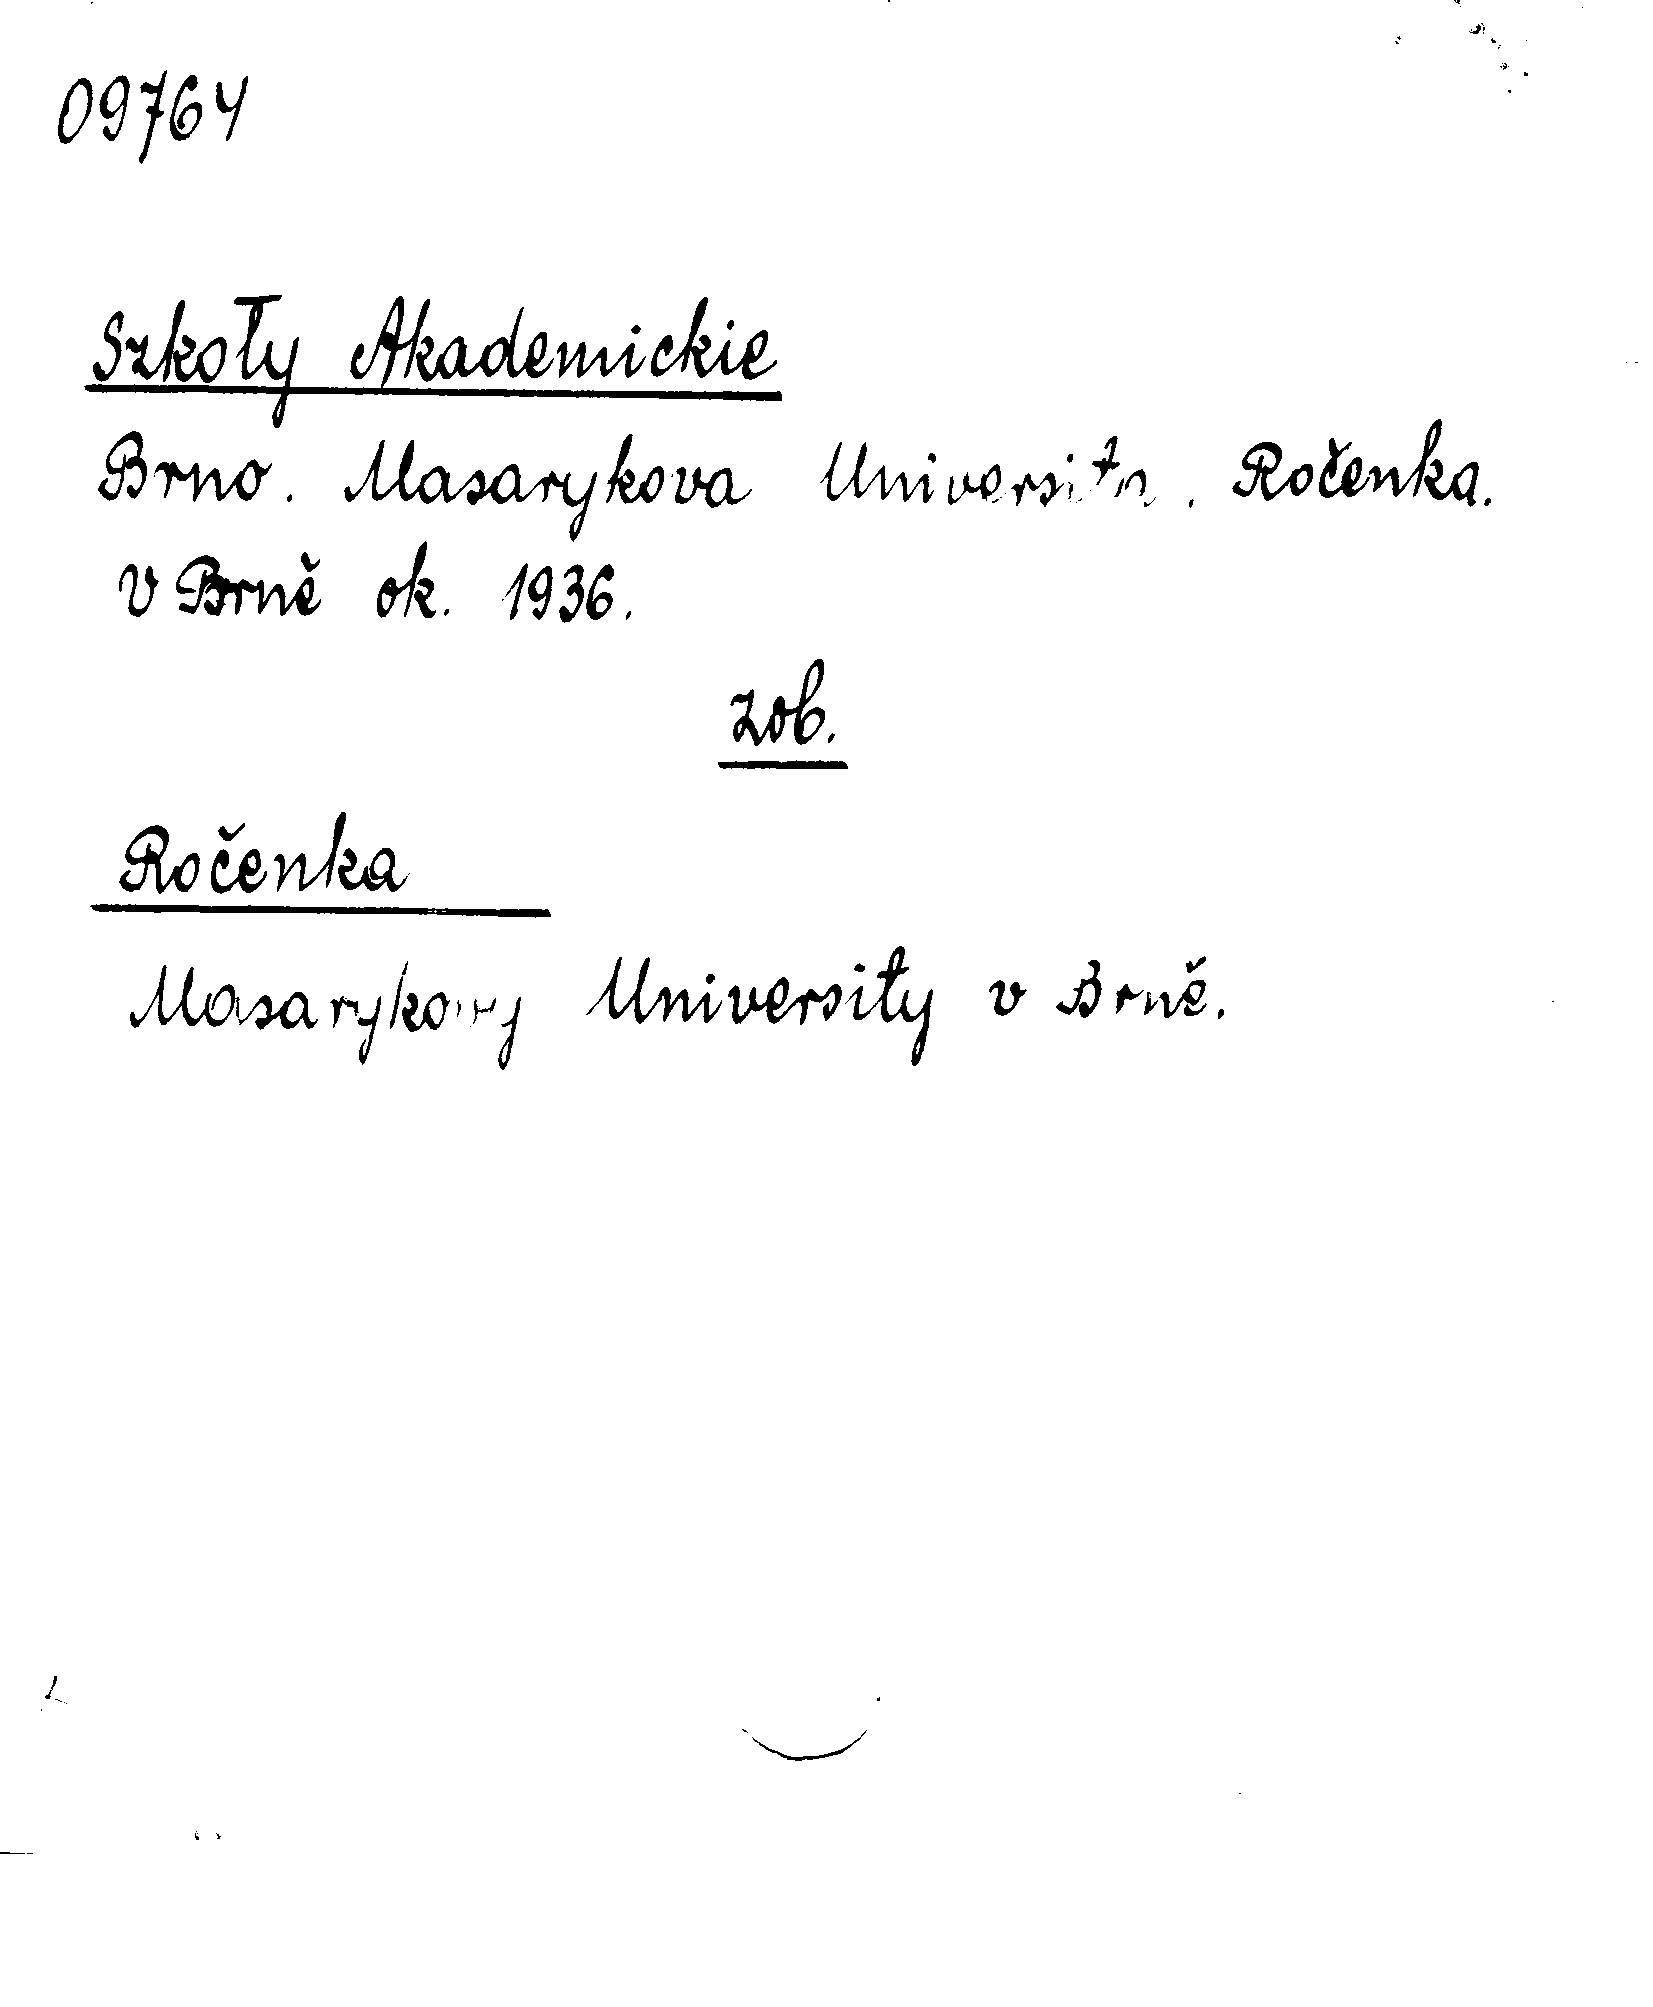 09764
Szkoły Akademickie
Brno. Masarykova Universita. Ročenka.
v Brně ok. 1936.
zob.
Ročenka
Masarykovy University v Brně.